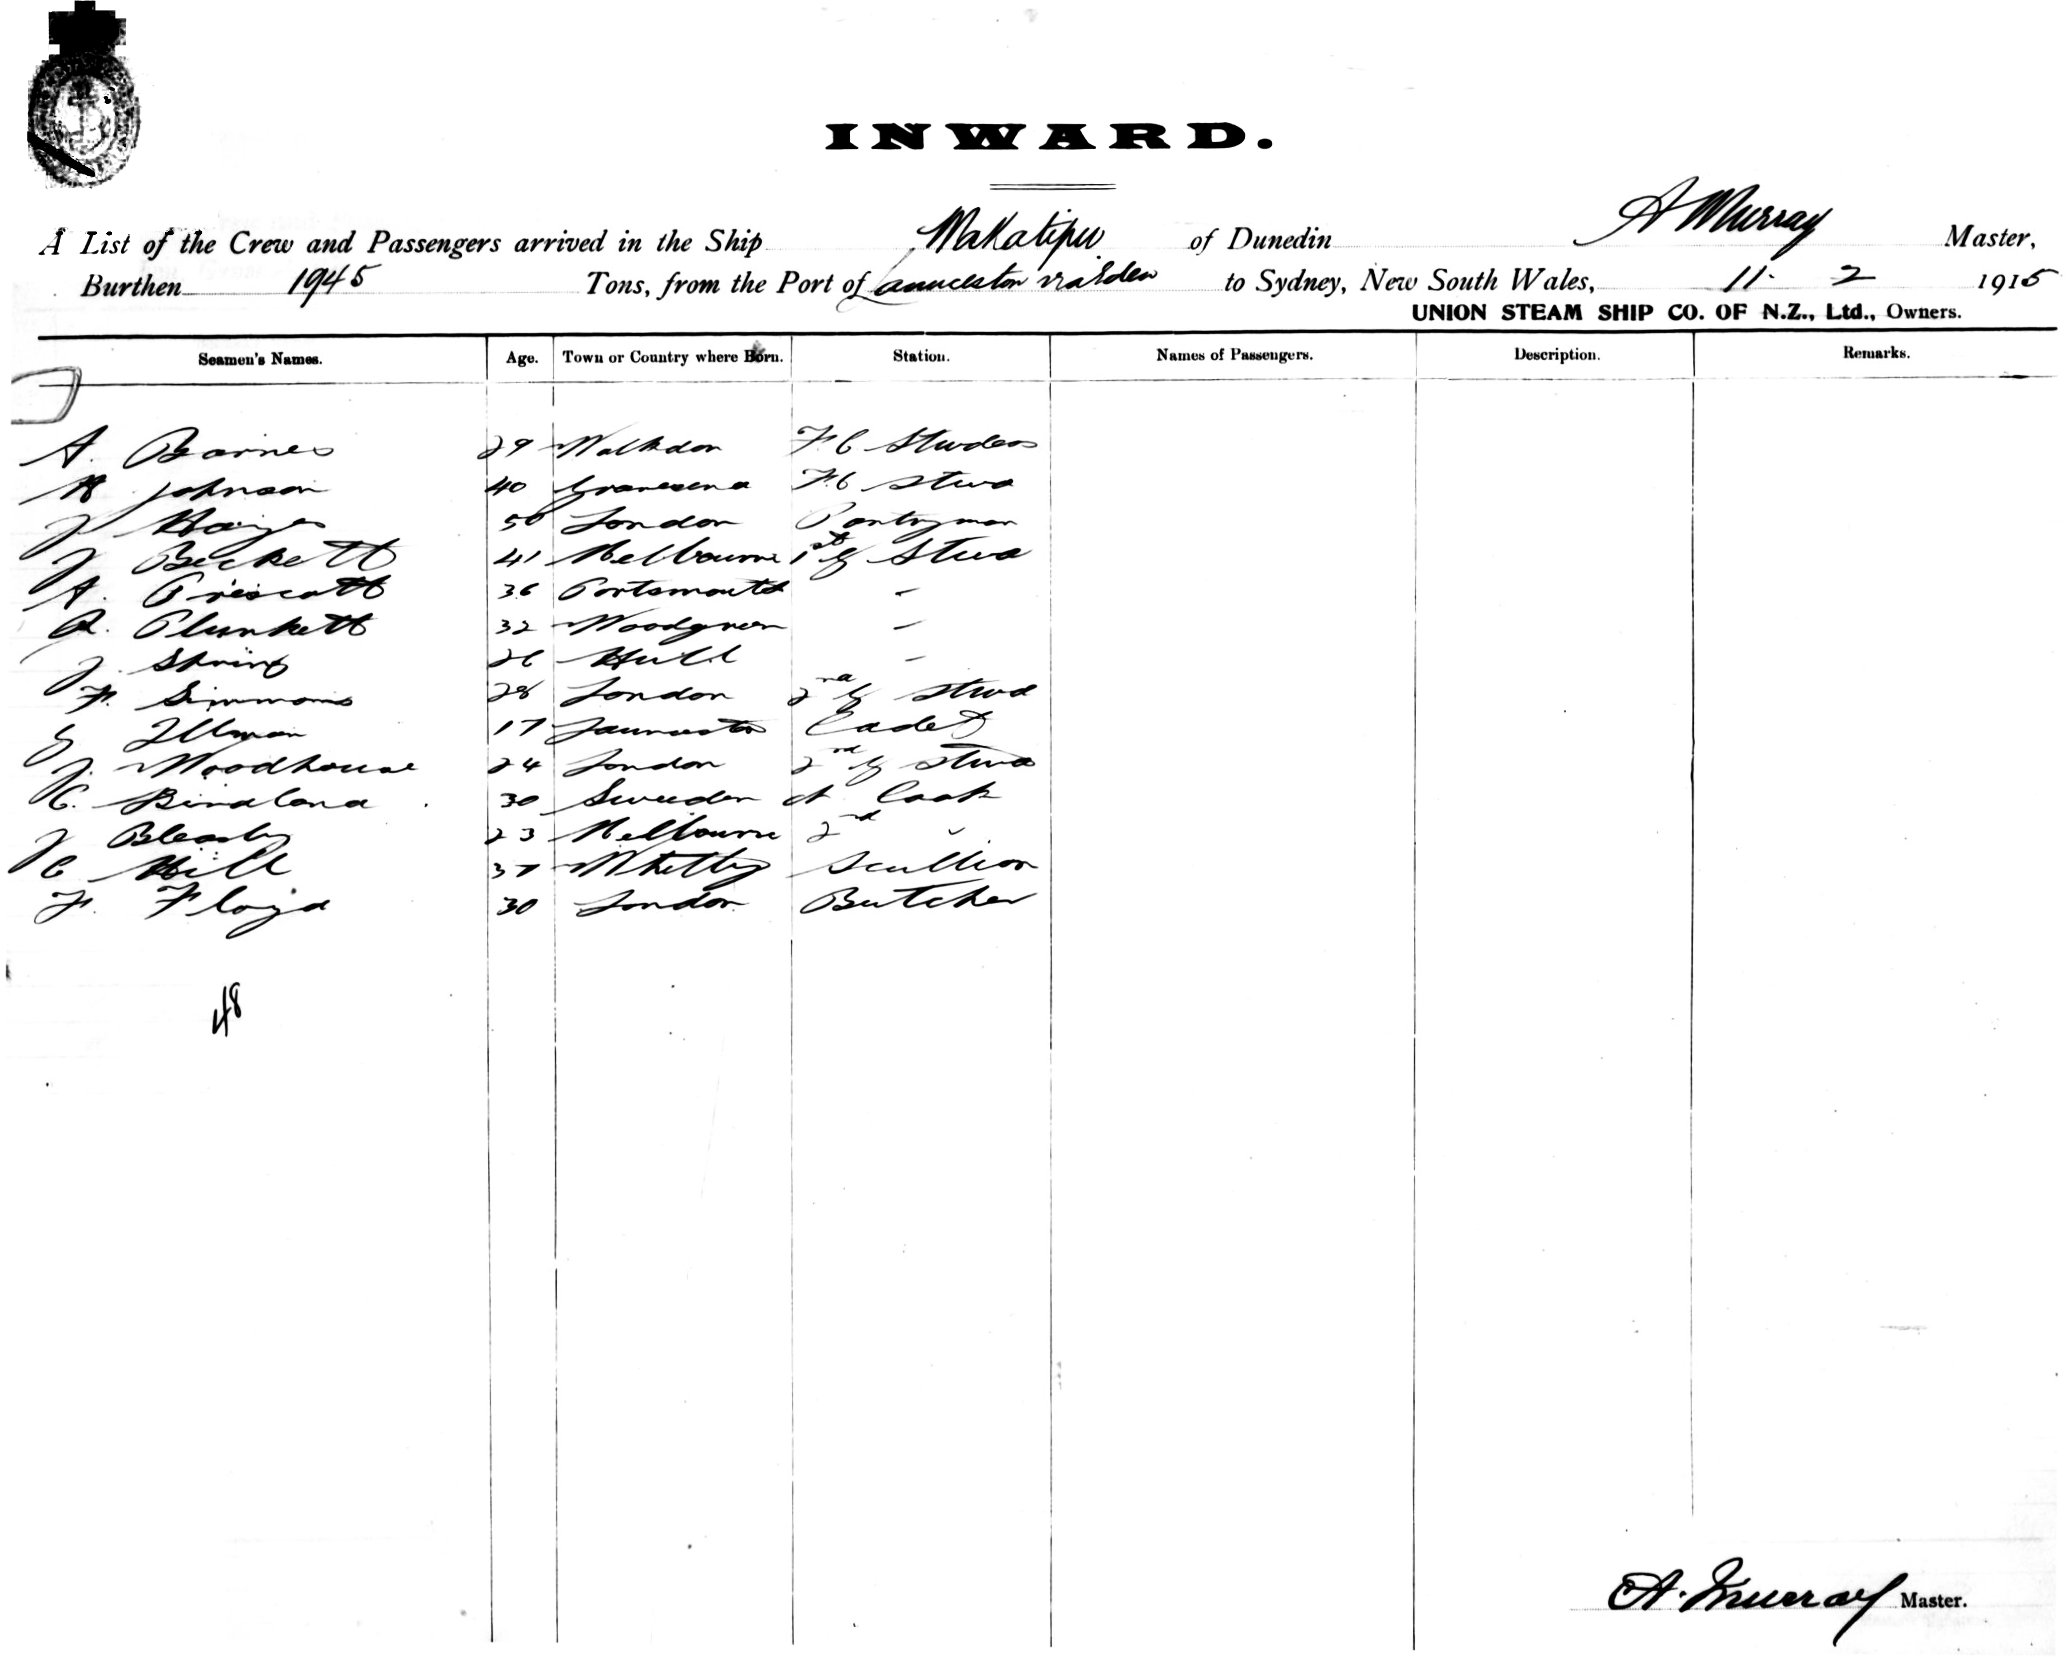 INWARD.
A List of the Crew and Passengers arrived in the Ship Wakatipu of Dunedin A Murray Master,
Burthen 1945 Tons, from the Port of Launceston via Eden to Sydney, New South Wales, 11. 2 1915
UNION STEAM SHIP CO. OF N.Z., Ltd., Owners.
Seamen's Names. Age. Town or Country where Born. Station. Names of Passengers. Description. Remarks.
A. Barnes 29 F C Stwdess
H Johnson 40 Gravesend F.C Stwd
J Hayes 50 London Pantryman
J Beckett 41 Melbourne 1st G Stwd
A. Prescott 36 Portsmouth -
R. Plunkett 32 Woodgreen -
J. 26 Hull -
F. Simmons 28 London 2nd G Stwd
G Illman 17 Launceston Cadet
J. Woodhouse 24 London 2nd G Stwd
C. 30 Sweden Ch Cook
J Bleasby 23 Melbourne 2nd "
C Hill 37 Whitby Scullion
F. Floyd 30 London Butcher
48
A. Murray Master.